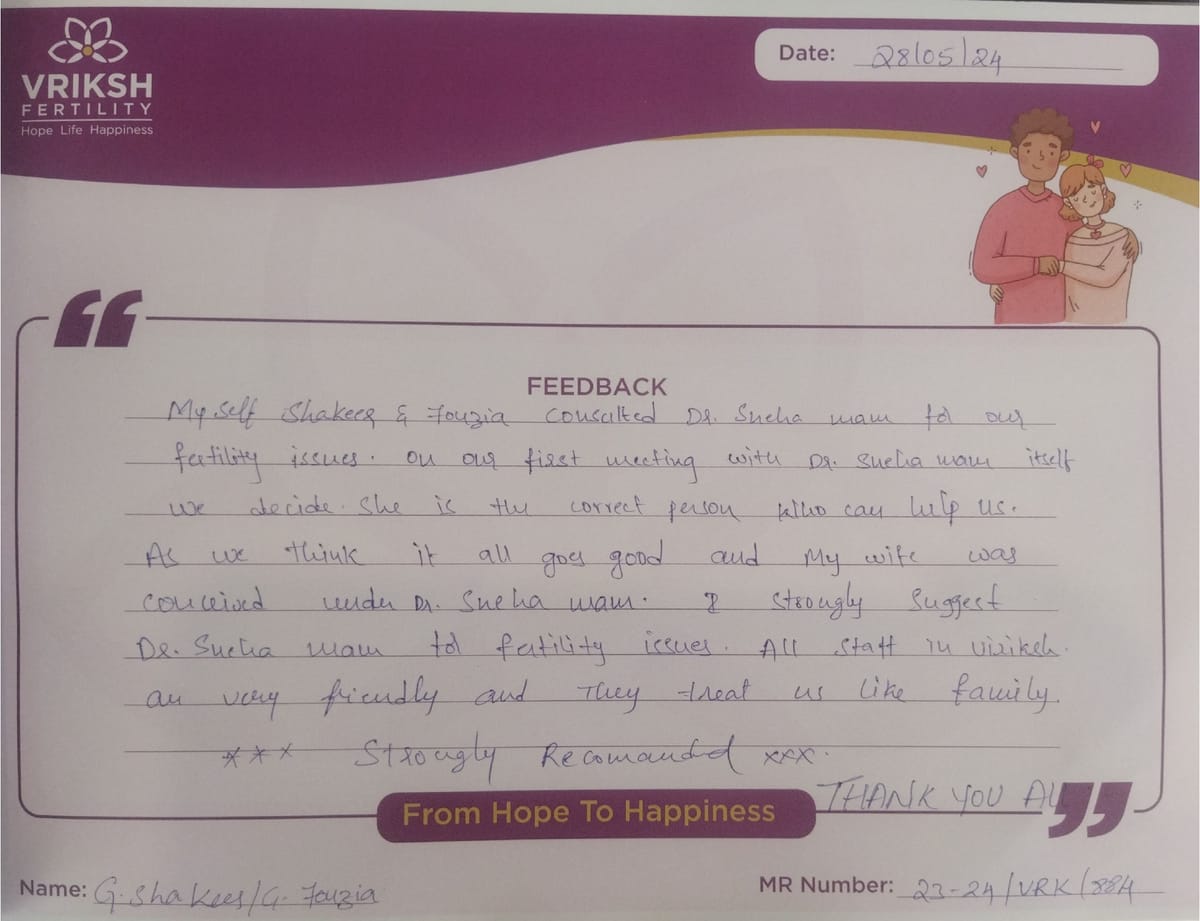 VRIKSH
FERTILITY
Hope Life Happiness
Date: 28/05/24
FEEDBACK
My self Shakeer & Fouzia consulted Dr. Sneha mam for our
fertility issues. on our first meeting with Dr. Sneha mam itself
we decide she is the correct person who can help us.
As we think it all goes good and My wife was
conceived under Dr. Sneha mam. I strongly suggest
Dr. Sneha mam for fertility issues. All staff in
are very friendly and They treat us like family.
*** Strongly Recomanded xxx.
THANK YOU ALL
From Hope To Happiness
Name: G. Shakeer/G. Fouzia
MR Number: 23-24/VRK/884